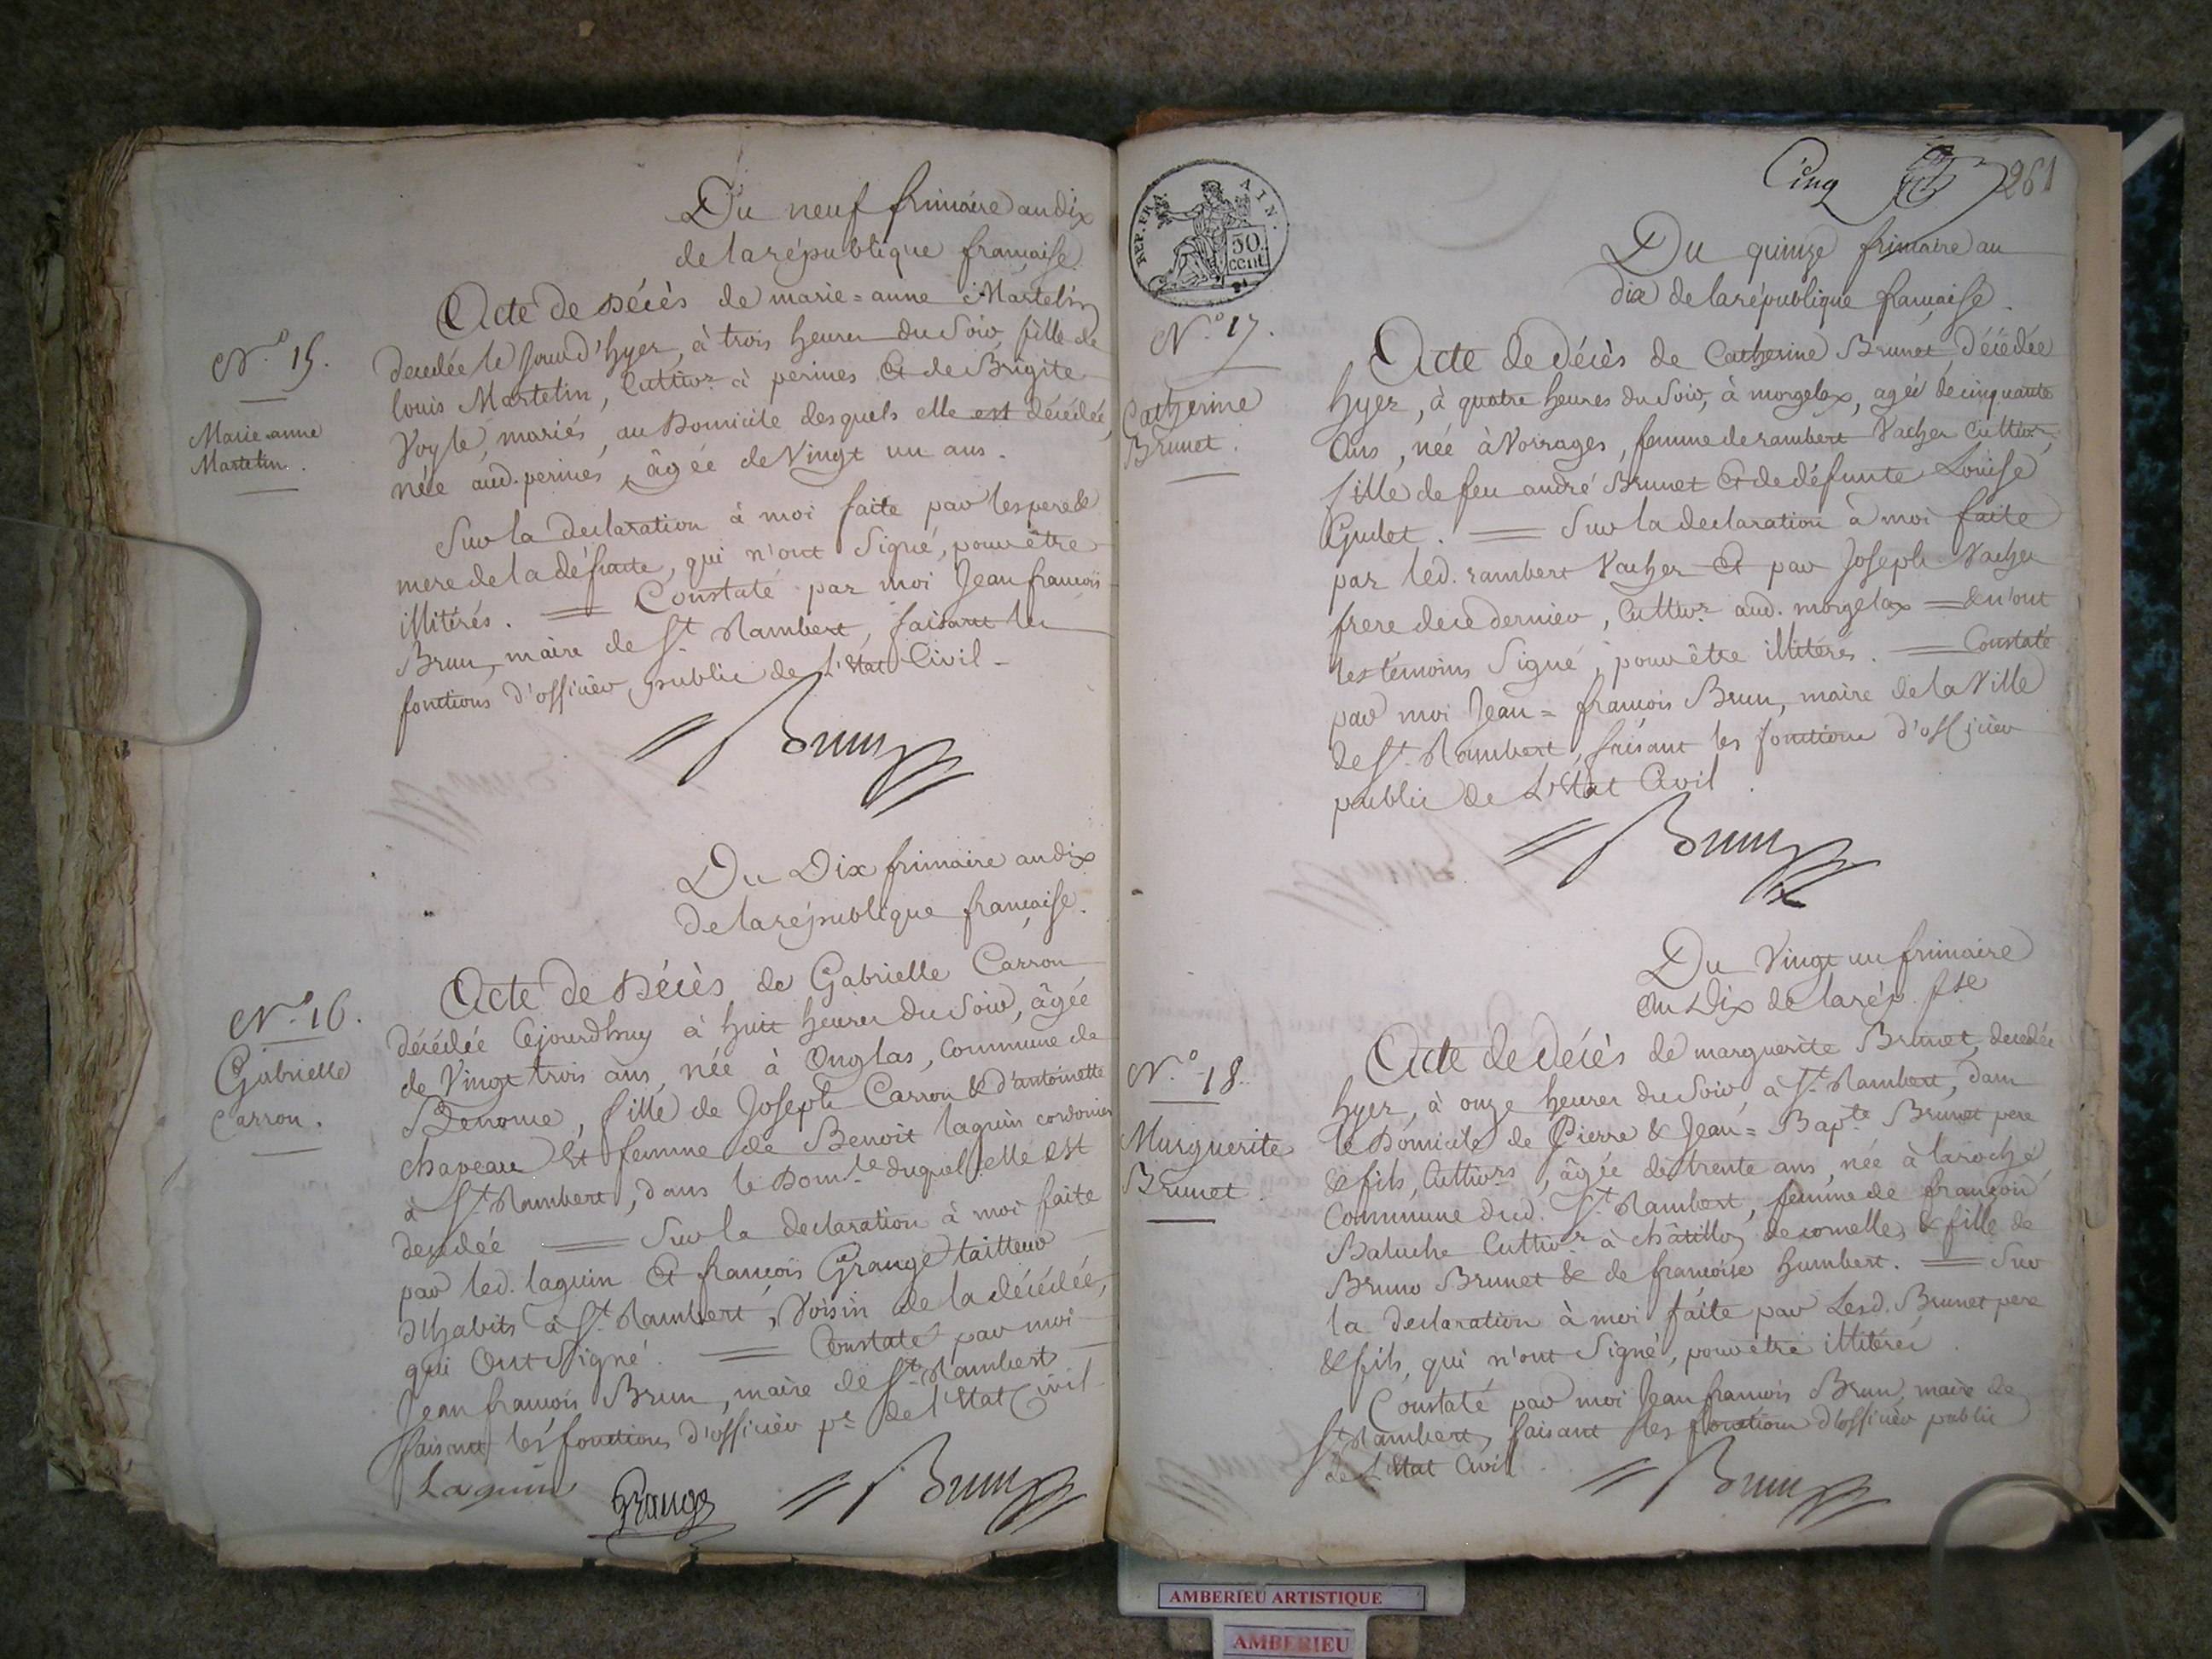 Du neuf frimaire an dix
de la république française.
Acte de Décès de marie=anne Martelin
decedée le jour d'hyer, à trois heures du Soir, fille de
louis Martelin, Cultivr. à perines Et de Brigite
Voyle, mariés, au Domicile desquels elle est décédée,
née aud. perines, âgée de Vingt un ans.
Sur la declaration à moi faite par les pere &
mere de la défunte, qui n'ont Signé, pour être
illitérés. = Constaté par moi Jean françois
Brun, maire de St. Rambert, faisant les
fonctions d'officier public de L'Etat Civil -
N.o 15.
Marie-anne
Martelin.
Brun
Du Dix frimaire an dix
de la république française.
N.o 16.
Gabrielle
Carron.
Acte de Décès de Gabrielle Carron
décédée Cejourdhuy à huit heures du Soir, âgée
de Vingt trois ans, née à Onglas, Commune de
Benonce, fille de Joseph Carron & d'antoinette
chapeau Et femme de Benoit laguin cordonier
à St. Rambert, dans le Domle. duquel elle est
decedée = Sur la declaration à moi faite
par led. laguin Et françois Grange tailleur
d'habits à St. Rambert, Voisin de la décédée,
qui Ont Signé. = Constaté par moi
Jean françois Brun, maire de St. Rambert
faisant les fonctions d'officier pc. de l'Etat Civil
Laguin Grange Brun
REP. FRA. AIN.
50
cent.
Cinq 261
Du quinze frimaire an
dix de la république française.
N.o 17.
Catherine
Brunet.
Acte de décès de Catherine Brunet, décédée
hyer, à quatre heures du Soir, à morgelax, agée de cinquante
Ans, née à Vorrages, femme de rambert Vacher Cultivr.,
fille de feu andré Brunet Et de défunte Louise
Gudet. = Sur la declaration à moi faite
par led. rambert Vacher Et par Joseph Vacher
frere de ce dernier, Cultivr. aud. morgelax = & n'ont
les témoins Signé, pour être illitérés. = Constaté
par moi Jean=françois Brun, maire de la Ville
de St. Rambert, faisant les fonctions d'officier
public de L'Etat Civil.
Brun
Du Vingt un frimaire
an Dix de la rép. fse
N.o 18.
Marguerite
Brunet.
Acte de décès de marguerite Brunet, decedée
hyer, à onze heures du Soir, à St. Rambert, dans
le Domicile de Pierre & Jean=Bapte. Brunet pere
& fils, Cultivrs, âgée de trente ans, née à laroche
Commune dud. St. Rambert, femme de françois
Baluche Cultivr. à châtillon de cornelles, & fille de
Bruno Brunet & de françoise humbert. = Sur
la declaration à moi faite par Lesd. Brunet pere
& fils, qui n'ont Signé, pour être illitérés
Constaté par moi Jean françois Brun, maire de
St. Rambert, faisant les fonctions d'officier public
de L'Etat Civil.
Brun
AMBERIEU ARTISTIQUE
AMBERIEU